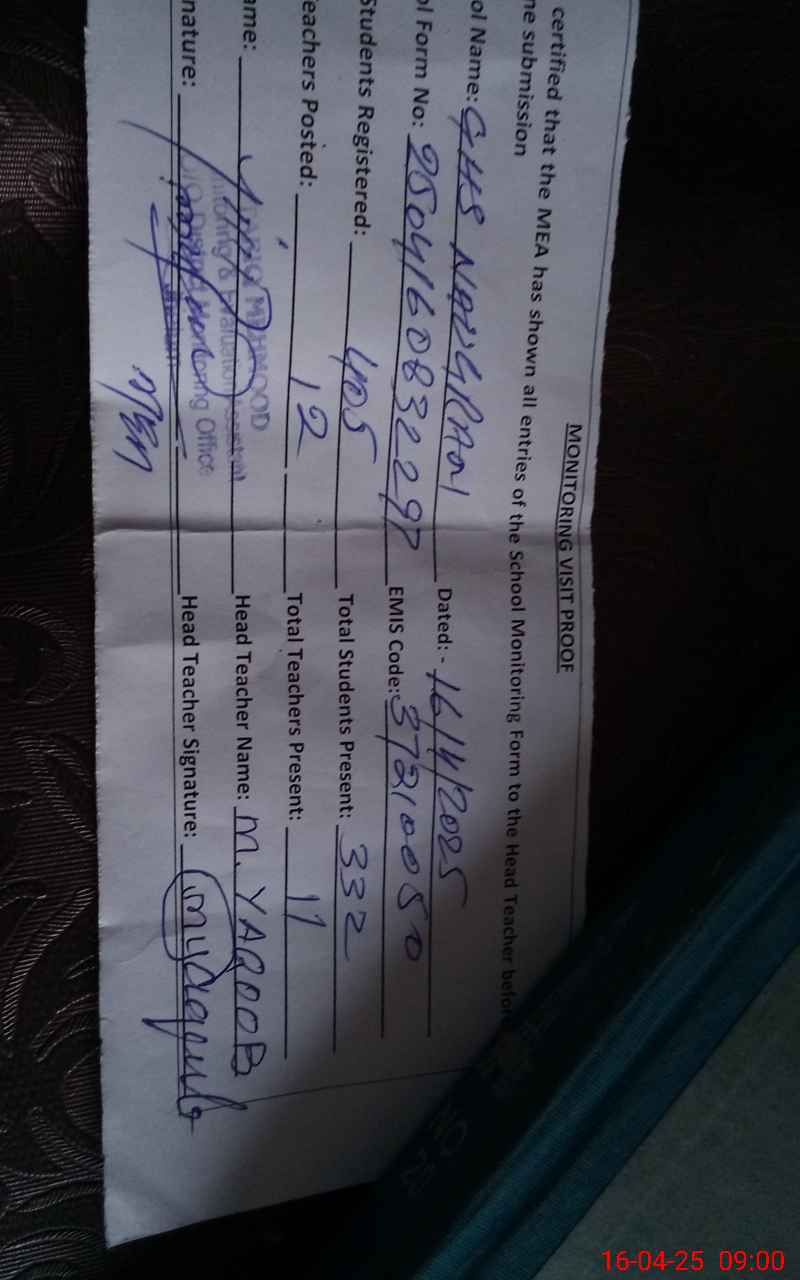 MONITORING VISIT PROOF
certified that the MEA has shown all entries of the School Monitoring Form to the Head Teacher before
ne submission
ol Name: GHS Dated: - 16/4/2025
ol Form No: 2504160832297 EMIS Code: 37210050
Students Registered: 405 Total Students Present: 332
eachers Posted: 12 Total Teachers Present: 11
ame: Head Teacher Name: M. YAQOOB
MEHMOOD
nitoring & Evaluation
District Monitoring Office
nature: Head Teacher Signature: myaqub
16-04-25 09:00